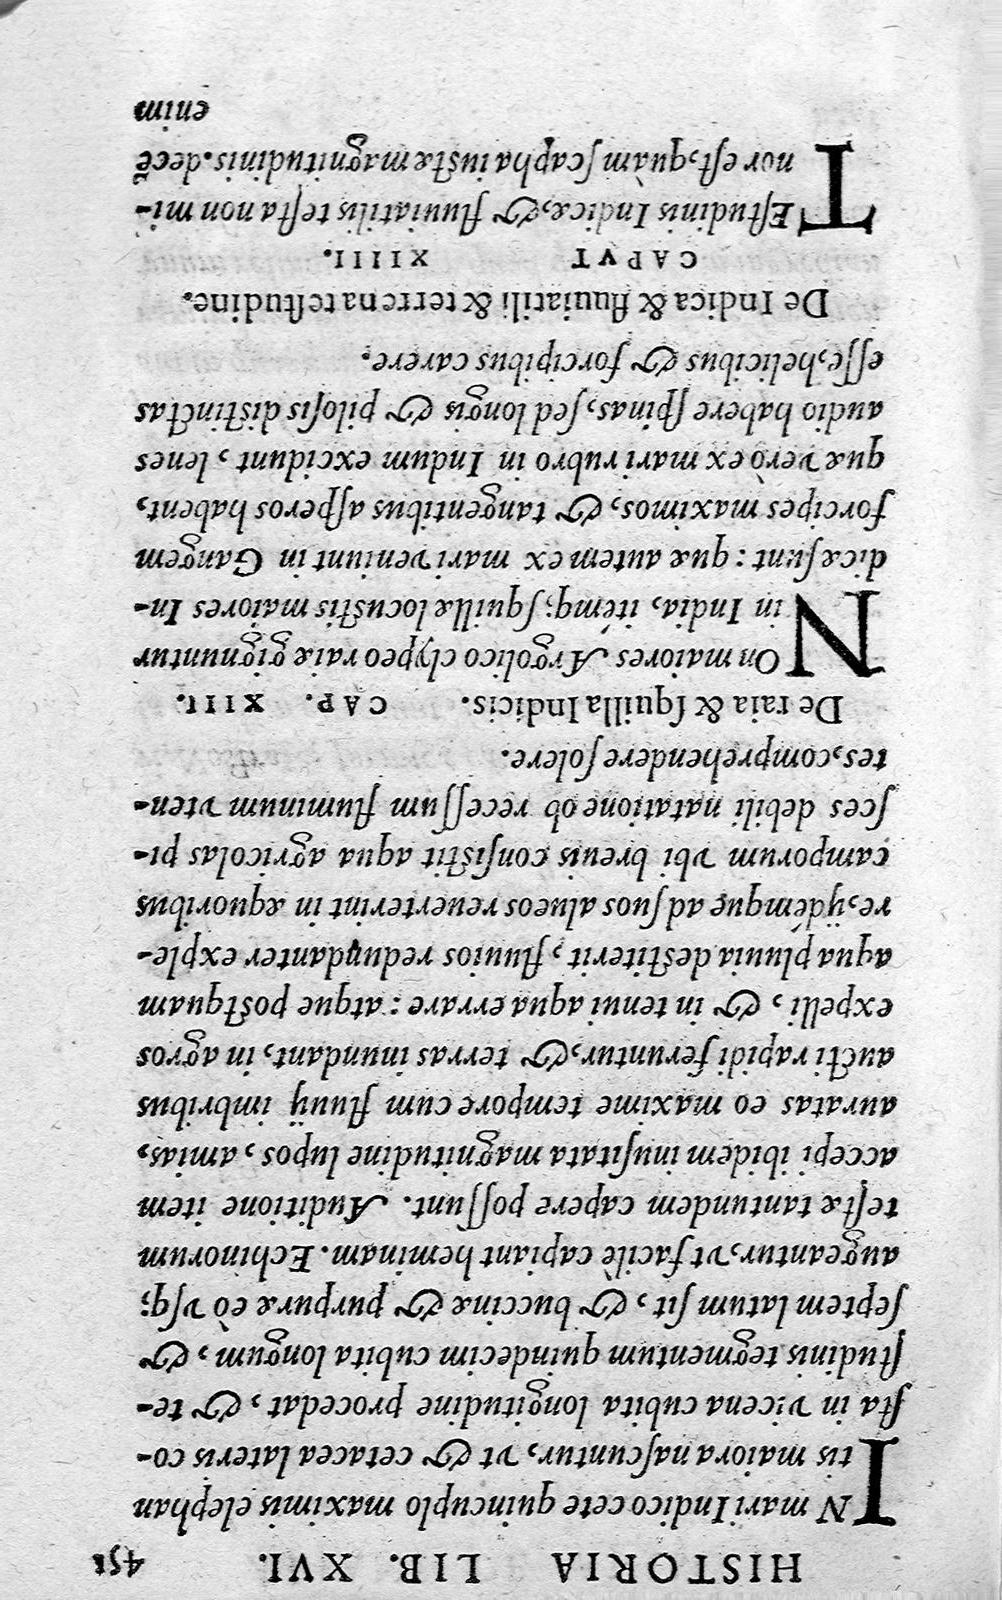 HISTORIA LIB. XVI. 451
IN mari Indico cete quincuplo maximis elephan
tis maiora nascuntur, vt & cetacea lateris co-
sta in vicena cubita longitudine procedat, & te-
studinis tegmentum quindecim cubita longum, &
septem latum sit, & buccinæ & purpuræ eò vsq;
augeantur, vt facilè capiant heminam. Echinorum
testæ tantundem capere possunt. Auditione item
accepi ibidem inusitata magnitudine lupos, amias,
auratas eo maxime tempore cum fluuij imbribus
aucti rapidi feruntur, & terras inundant, in agros
expelli, & in tenui aqua errare: atque postquam
aqua pluuia destiterit, fluuios redundanter exple-
re, ijdémque ad suos alueos reuerterint in æquoribus
camporum vbi breuis consistit aqua agricolas pi-
sces debili natatione ob recessum fluminum vten-
tes, comprehendere solere.
De raia & squilla Indicis. CAP. XIII.
NOn maiores Argolico clypeo raiæ gignuntur
in India, itémq; squillæ locustis maiores In-
dicæ sunt: quæ autem ex mari veniunt in Gangem
forcipes maximos, & tangentibus asperos habent,
quæ verò ex mari rubro in Indum excidunt, lenes
audio habere spinas, sed longis & pilosis distinctas
esse, helicibus & forcipibus carere.
De Indica & fluuiatili & terrena testudine.
CAPVT XIIII.
TEstudinis Indicæ, & fluuiatilis testa non mi-
nor est, quàm scapha iustæ magnitudinis. decē
enim